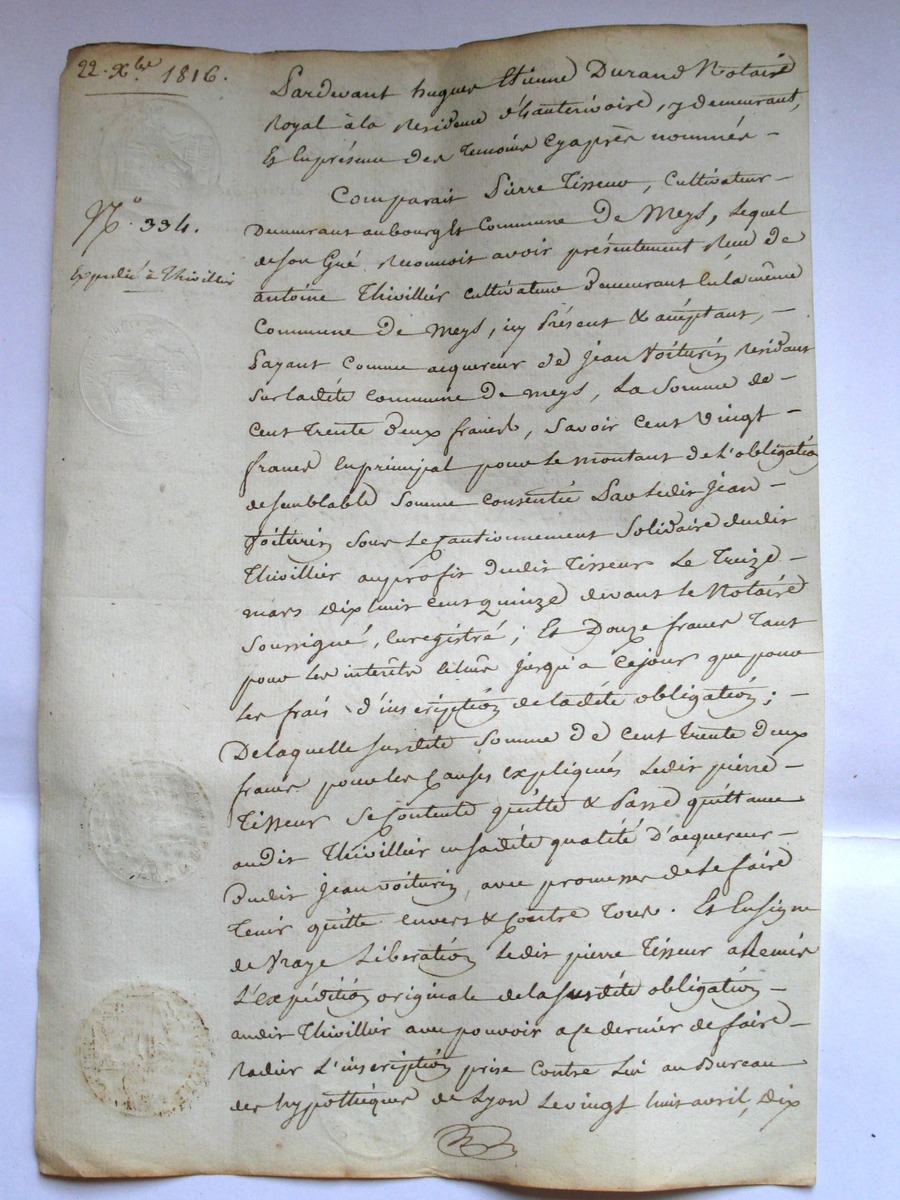 22. Xbre 1816.
Pardevant hugues Etienne Durand Notaire
Royal à la Residence d'hauterivoire, y demeurant,
Et En présence des temoins Cyaprès nommés –
N° 334.
Comparait Pierre Tisseur, Cultivateur –
Demeurant au bourg Et Commune De Meys, Lequel
de son Gré Reconnoit avoir présentement Reçu de
Expedié à Thivillier
antoine Thivillier cultivateur Demeurant En la même
Commune De Meys, icy Présent & acceptant, –
Payant Comme acquereur de jean Voiturin Residant
Sur ladite commune De meys, La Somme de –
Cent trente Deux francs, Savoir Cent Vingt –
francs En principal pour Le montant de L'obligation
de semblable Somme Consentie Par Ledit jean –
Voiturin Sous Le Cautionnement Solidaire dudit
Thivillier au profit Dudit Tisseur Le Treize –
mars Dix huit Cent quinze devant Le Notaire
Soussigné, Enregistré ; Et Douze francs Tant
pour Les interêts jusqu'a Cejour que pour
Les frais d'inscription de ladite obligation ; –
De laquelle susdite Somme De Cent trente Deux
francs pour Les Causes expliqués Ledit pierre –
Tisseur Se Contente quitte & Passe quittance
audit Thivillier en sadite qualité D'acquereur –
Dudit jean voiturin, avec promesses de Le faire
Tenir quitte envers & Contre Tous. Et En Signe
de Vraye Liberation Ledit pierre Tisseur a Remis
L'expédition originale de la susdite obligation –
audit Thivillier avec pouvoir a Ce dernier de faire –
Radier L'inscription prise Contre Lui au Bureau
des hypothéques de Lyon Le vingt huit avril, Dix